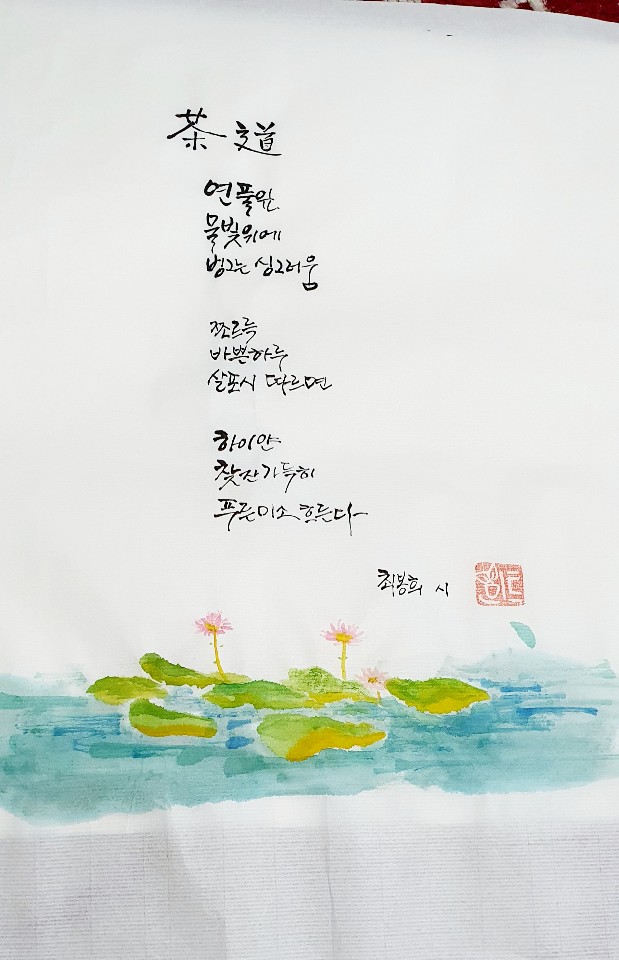 茶道
연풀잎
물빛위에
벙그는 싱그러움
쪼르륵
바쁜하루
살포시 따르면
하이얀
찻잔가득히
푸른미소흐른다
최봉희 시